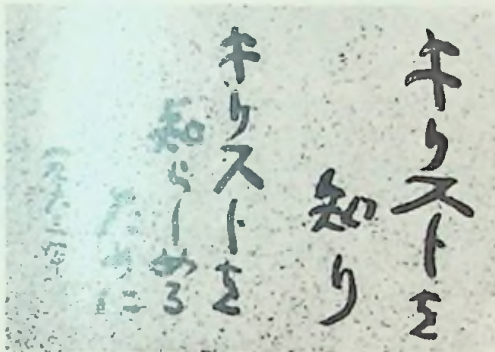 キリストを
知り
キリストを
知らしめる
ために